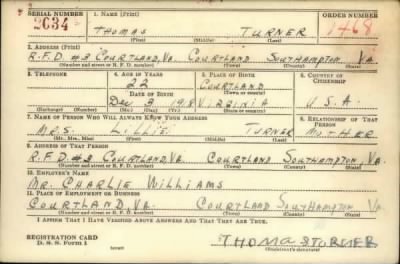 SERIAL NUMBER 1. NAME (Print) ORDER NUMBER
2634 THOMAS TURNER 1468
(First) (Middle) (Last)
2. ADDRESS (Print)
R.F.D #3 COURTLAND, VA. COURTLAND SOUTHAMPTON VA.
(Number and street or R. F. D. number) (Town) (County) (State)
3. TELEPHONE 4. AGE IN YEARS 5. PLACE OF BIRTH 6. COUNTRY OF CITIZENSHIP
22 COURTLAND
DATE OF BIRTH (Town or county)
Dec 3 VIRGINIA U.S.A.
(Exchange) (Number) (Mo.) (Day) (Yr.) (State or country)
7. NAME OF PERSON WHO WILL ALWAYS KNOW YOUR ADDRESS 8. RELATIONSHIP OF THAT PERSON
MRS. LILLIE TURNER MOTHER
(Mr., Mrs., Miss) (First) (Middle) (Last)
9. ADDRESS OF THAT PERSON
R.F.D #3 COURTLAND, VA. COURTLAND SOUTHAMPTON, VA.
(Number and street or R. F. D. number) (Town) (County) (State)
10. EMPLOYER'S NAME
MR. CHARLIE WILLIAMS
11. PLACE OF EMPLOYMENT OR BUSINESS
COURTLAND, VA COURTLAND SOUTHAMPTON VA.
(Number and street or R. F. D. number) (Town) (County) (State)
I AFFIRM THAT I HAVE VERIFIED ABOVE ANSWERS AND THAT THEY ARE TRUE.
REGISTRATION CARD
D. S. S. Form 1 THOMAS TURNER
(Registrant's signature)